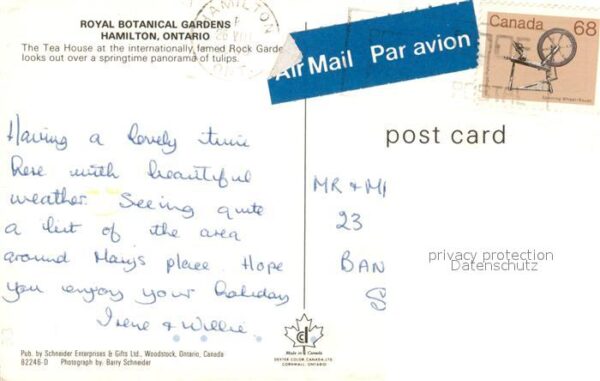 ROYAL BOTANICAL GARDENS
HAMILTON, ONTARIO
The Tea House at the internationally famed Rock Garde
looks out over a springtime panorama of tulips.
HAMILTON
ONT
Air Mail Par avion
Canada 68
post card
Having a lovely time
here with beautiful
weather. Seeing quite
a bit of the area
around Marys place. Hope
you enjoy your holiday
Irene & Willie.
MR & MR
23
BAN
S
privacy protection
Datenschutz
Made in Canada
DEXTER COLOR CANADA LTD
CORNWALL, ONTARIO
Pub. by Schneider Enterprises & Gifts Ltd., Woodstock, Ontario, Canada
82246-D Photograph by: Barry Schneider